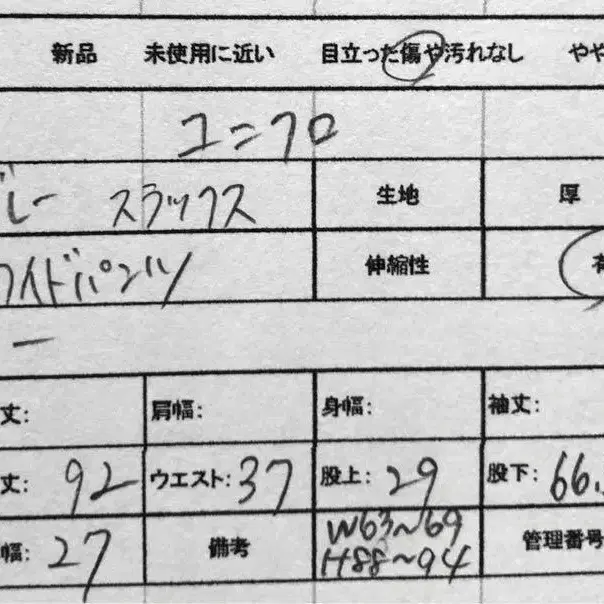 新品 未使用に近い 目立った傷や汚れなし やや
ユニクロ
グレー スラックス 生地 厚
ワイドパンツ 伸縮性 有
ー
丈: 肩幅: 身幅: 袖丈:
丈: 92 ウエスト: 37 股上: 29 股下: 66.
幅: 27 備考 W63~69 管理番号
H88~94